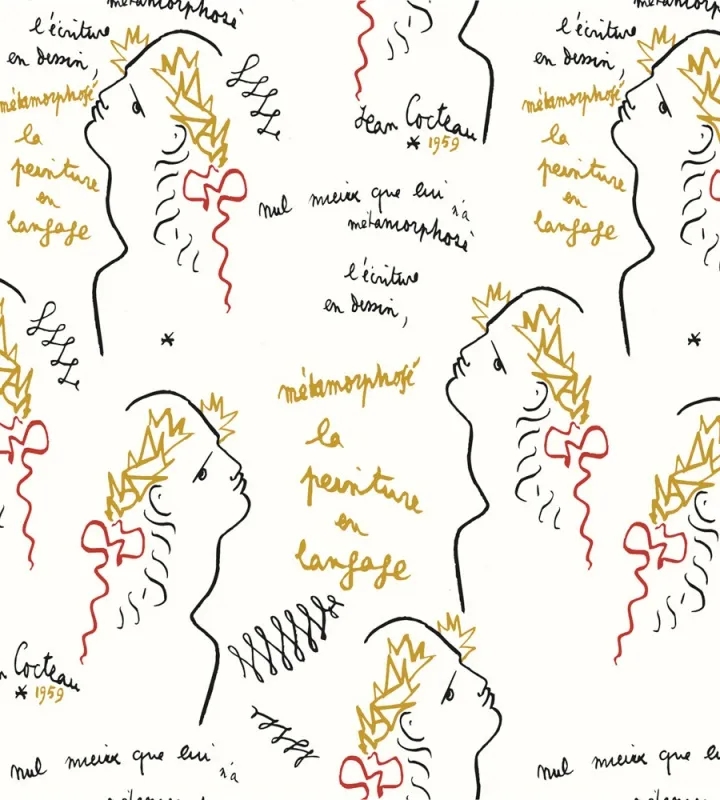 métamorphosé
l'écriture
en dessin,
métamorphosé
la
peinture
en
langage
Jean Cocteau
* 1959
nul mieux que lui n'a
métamorphosé
l'écriture
en dessin,
métamorphosé
la
peinture
en
langage
métamorphosé
l'écriture
en dessin,
métamorphosé
la
peinture
en
langage
*
*
Cocteau
* 1959
nul mieux que lui n'a
nul mieux que lui